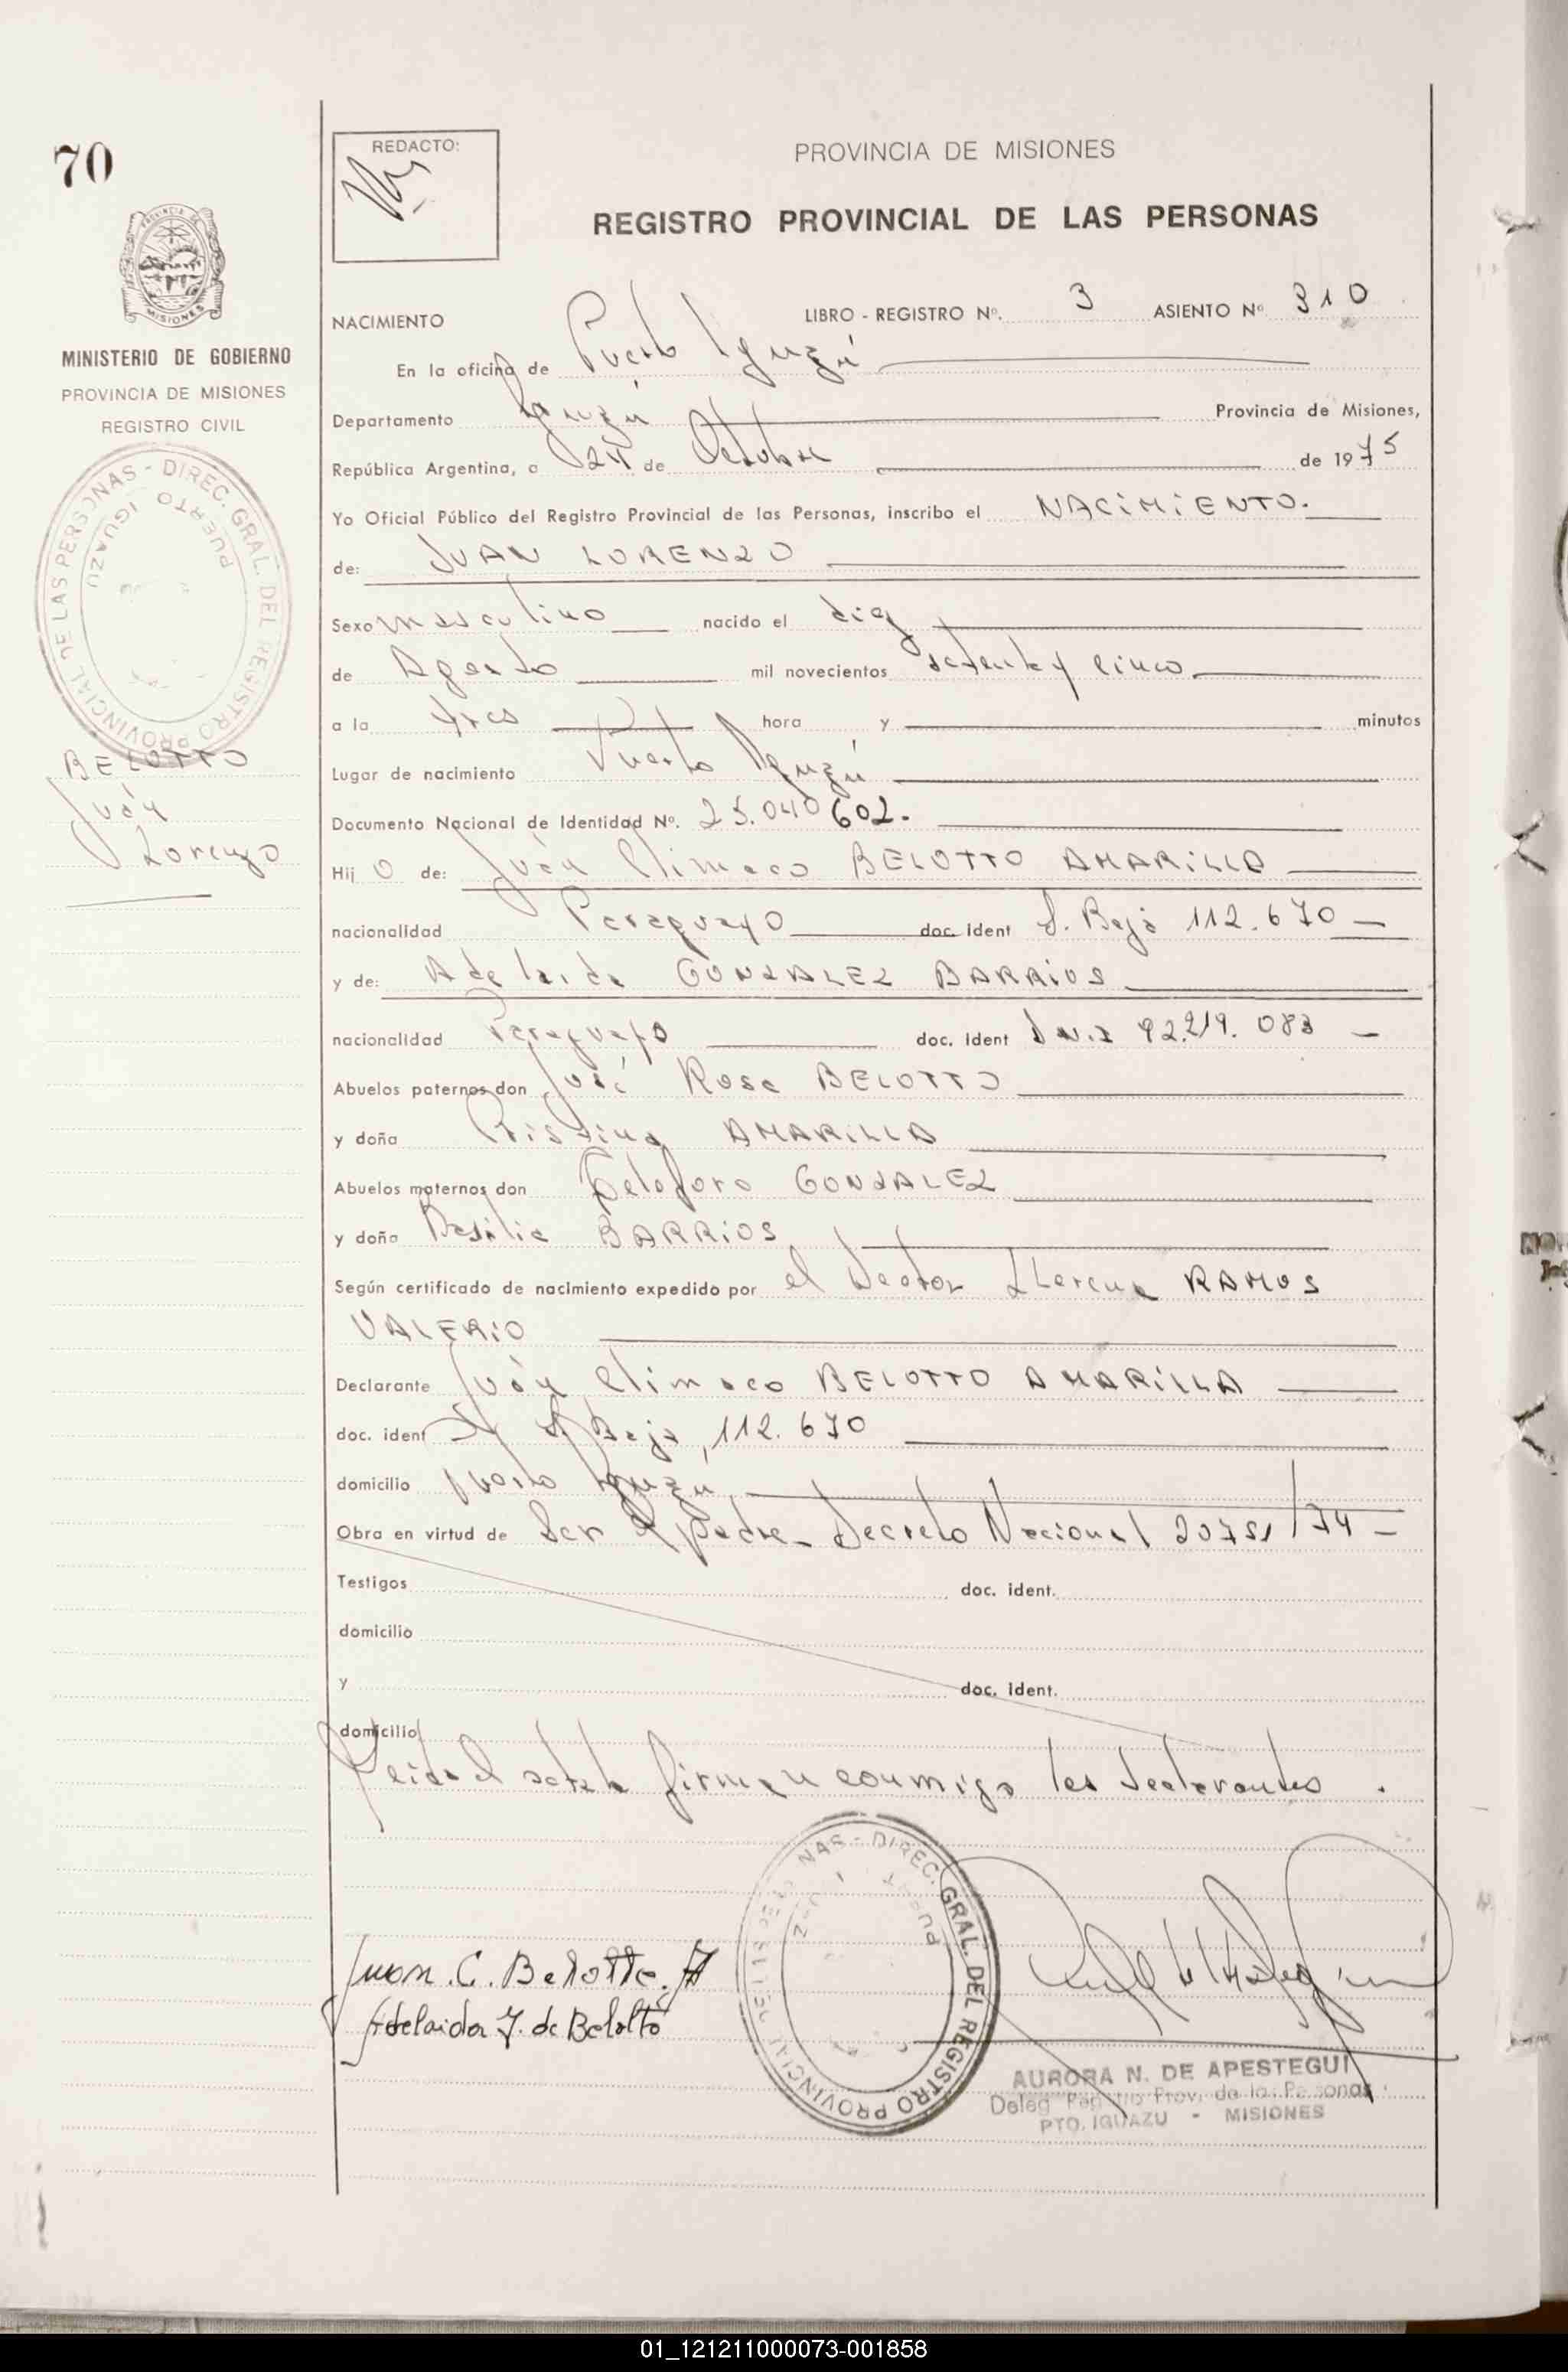 70
REDACTO:
PROVINCIA DE MISIONES
REGISTRO PROVINCIAL DE LAS PERSONAS
PROVINCIA DE
MISIONES
MINISTERIO DE GOBIERNO
PROVINCIA DE MISIONES
REGISTRO CIVIL
DIREC. GRAL. DEL REGISTRO PROVINCIAL DE LAS PERSONAS -
PUERTO IGUAZU
BELOTTO
Juán
Lorenzo
NACIMIENTO LIBRO - REGISTRO Nº. 3 ASIENTO Nº 310
En la oficina de Puerto Iguazú
Departamento Iguazú Provincia de Misiones,
República Argentina, a 24 de Octubre de 1975
Yo Oficial Público del Registro Provincial de las Personas, inscribo el NACIMIENTO.
de: JUAN LORENZO
Sexo masculino nacido el diez
de Agosto mil novecientos setenta y cinco
a la tres hora y minutos
Lugar de nacimiento Puerto Iguazú
Documento Nacional de Identidad Nº. 25.040602.
Hij o de: Juán Climaco BELOTTO AMARILLA
nacionalidad Paraguayo doc. ident S. Baja 112.670
y de: Adelaida GONZALEZ BARRIOS
nacionalidad Paraguayo doc. ident D.N.I 92.219.083
Abuelos paternos don José Rosa BELOTTO
y doña Cristina AMARILLA
Abuelos maternos don Celoforo GONZALEZ
y doña Basilia BARRIOS
Según certificado de nacimiento expedido por el Doctor Llerena RAMOS
VALERIO
Declarante Juán Climaco BELOTTO AMARILLA
doc. ident S. Baja 112.670
domicilio Puerto Iguazú
Obra en virtud de Ser el padre - Decreto Nacional 20751/74 -
Testigos doc. ident.
domicilio
y doc. ident.
domicilio
Leida el acta la firman conmigo los declarantes.
Juan. C. Belotto. A
Adelaida G. de Belotto
DIREC. GRAL. DEL REGISTRO PROVINCIAL DE LAS PERSONAS -
AURORA N. DE APESTEGUI
Deleg Registro Prov. de las Personas
PTO. IGUAZU - MISIONES
01_121211000073-001858